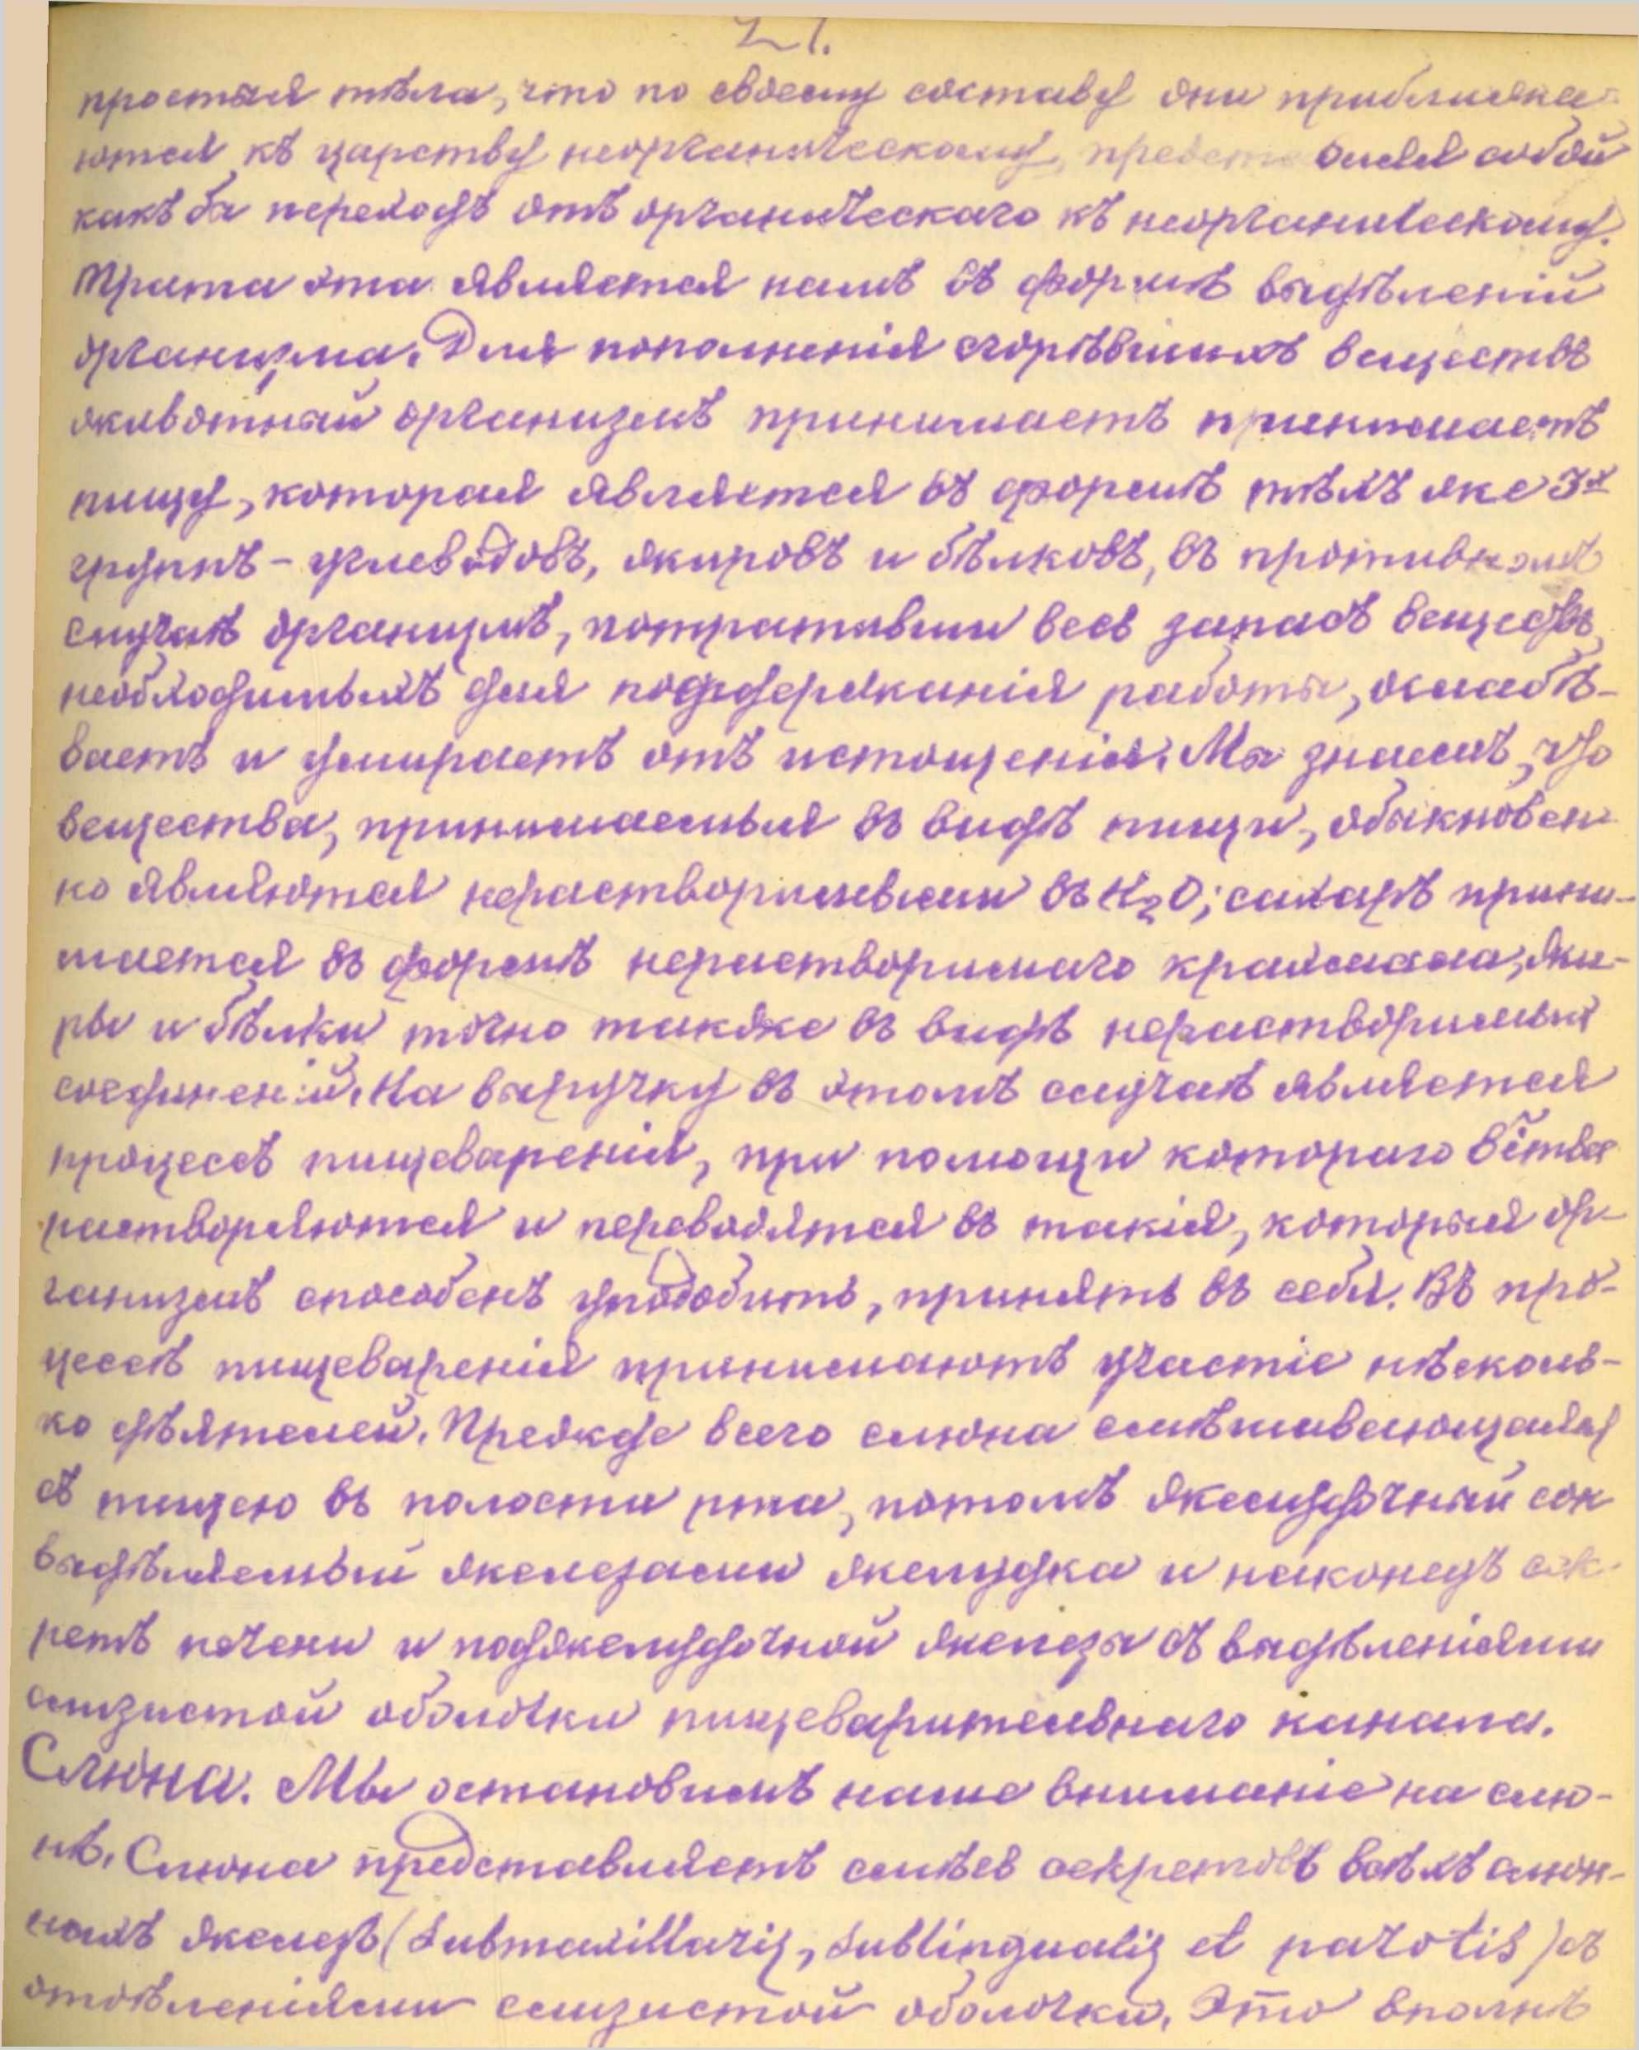 21.
простыя тѣла, что по своему составу они приближа-
ются къ царству неорганическому, представляя собой
какъ бы переходъ отъ органическаго къ неорганическому.
Трата эта является намъ въ формѣ выдѣленій
организма. Для пополненія сгорѣвшихъ веществъ
животный организмъ принимаетъ принимаетъ
пищу, которая является въ формѣ тѣхъ же 3х
группъ - углеводовъ, жировъ и бѣлковъ, въ противномъ
случаѣ организмъ, потративши весь запасъ веществъ,
необходимыхъ для поддержанія работы, ослабѣ-
ваетъ и умираетъ отъ истощенія. Мы знаемъ, что
вещества, принимаемыя въ видѣ пищи, обыкновен-
но являются нерастворимыми въ H2O; сахаръ прини-
мается въ формѣ нерастворимаго крахмала, жи-
ры и бѣлки точно также въ видѣ нерастворимыхъ
соединеній. На выручку въ этомъ случаѣ является
процессъ пищеваренія, при помощи котораго в̃ства
растворяются и переводятся въ такія, которыя ор-
ганизмъ способенъ уподобить, принять въ себя. Въ про-
цессѣ пищеваренія принимаютъ участіе нѣсколь-
ко дѣятелей. Прежде всего слюна смѣшивающаяся
съ пищею въ полости рта, потомъ желудочный сок
выдѣляемый железами желудка и наконецъ сек-
ретъ печени и поджелудочной железы съ выдѣленіями
слизистой оболочки пищеварительнаго канала.
Слюна. Мы остановимъ наше вниманіе на слю-
нѣ. Слюна представляетъ смѣсь секретовъ всѣхъ слюн-
ныхъ железъ (Submaxillaris, Sublingualis et parotis) съ
отдѣленіями слизистой оболочки. Это вполнѣ